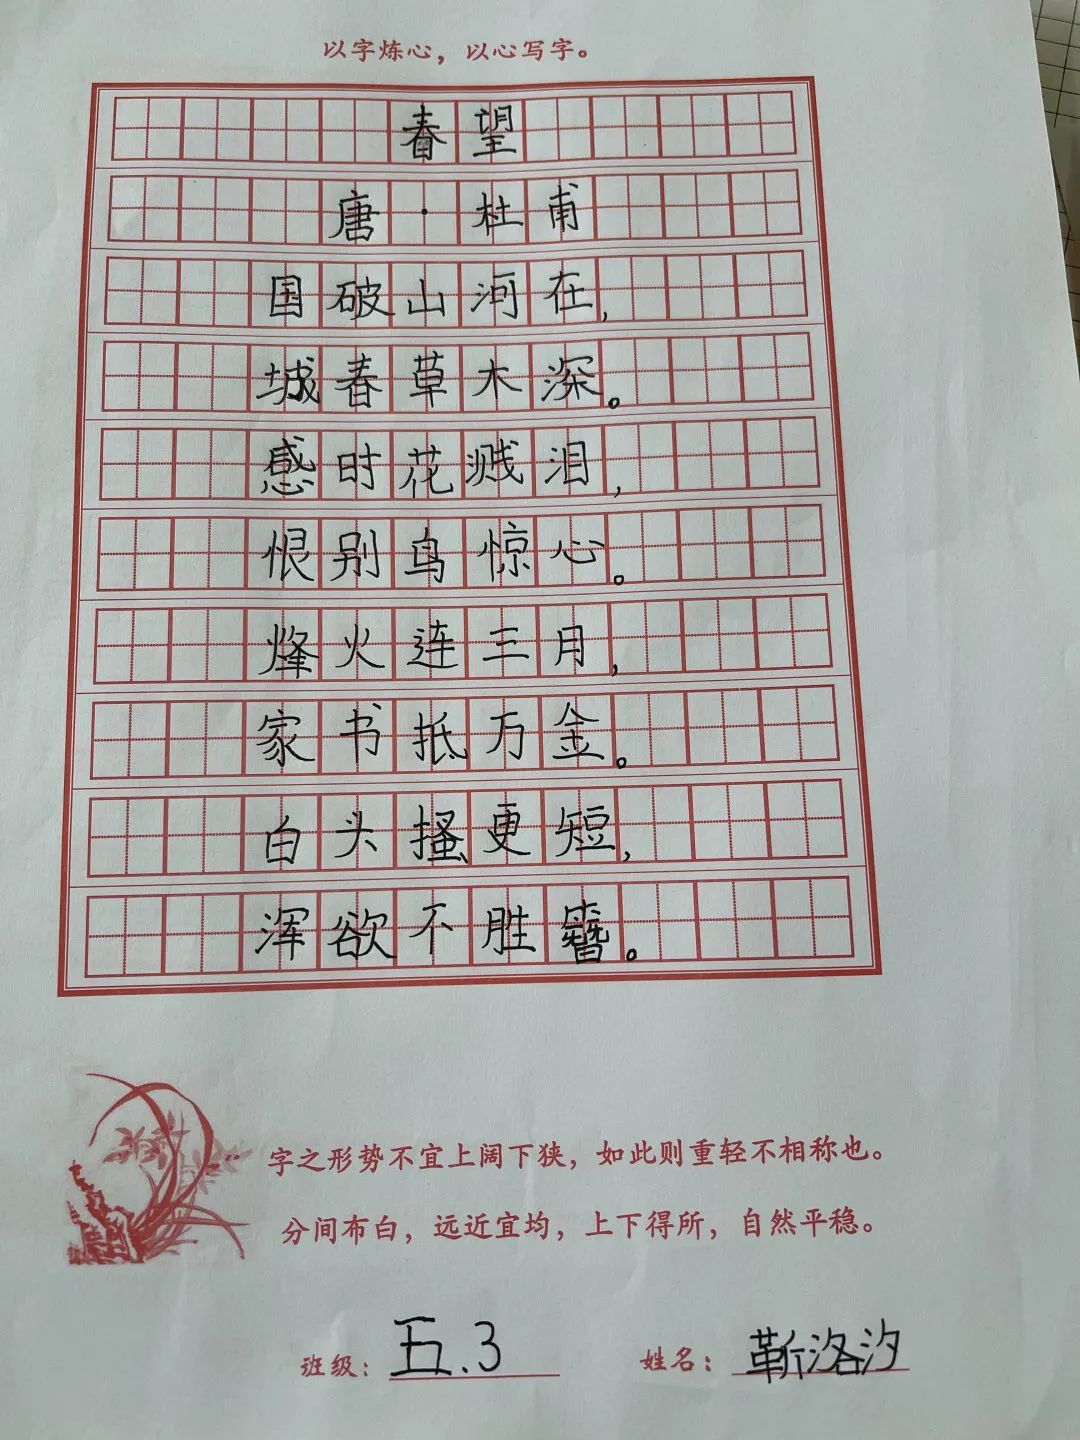 以字炼心，以心写字。
春望
唐·杜甫
国破山河在，
城春草木深。
感时花溅泪，
恨别鸟惊心。
烽火连三月，
家书抵万金。
白头搔更短，
浑欲不胜簪。
字之形势不宜上阔下狭，如此则重轻不相称也。
分间布白，远近宜均，上下得所，自然平稳。
班级：五.3 姓名：靳洛汐